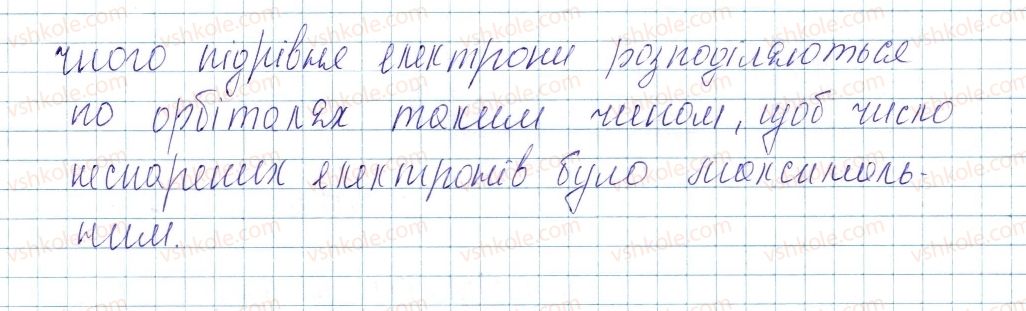 чного підрівня електрони розподіляються
по орбіталях таким чином, щоб число
неспарених електронів було максималь-
ним.